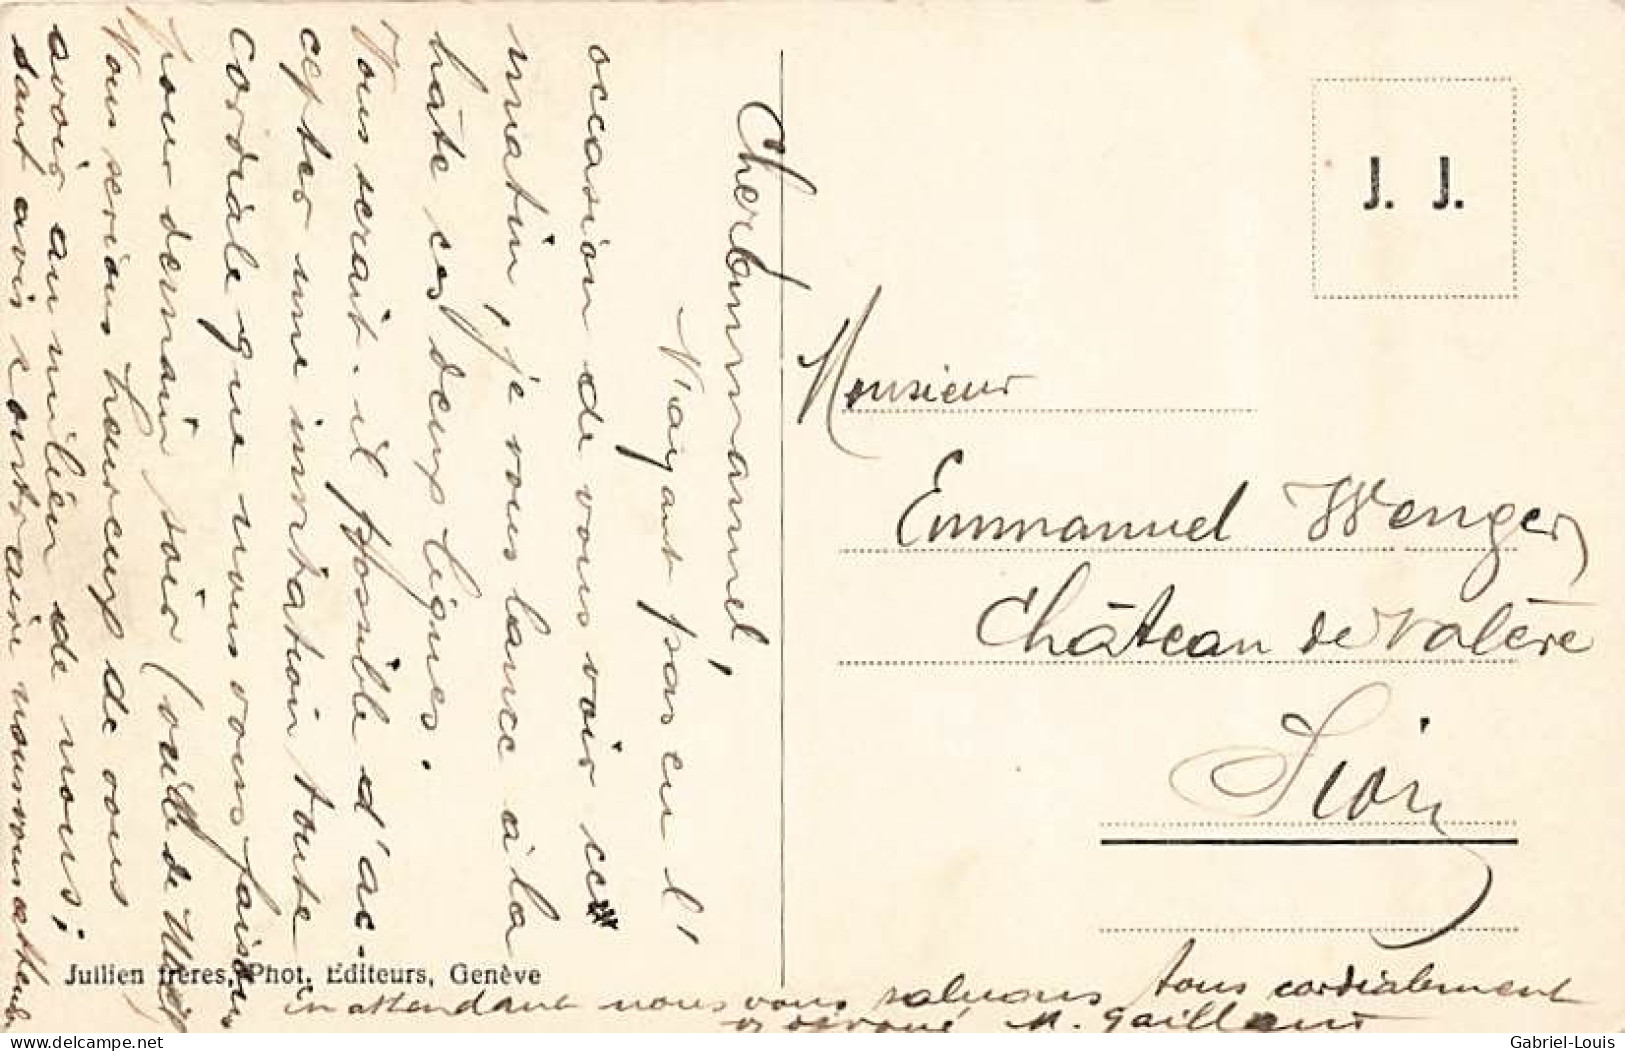 Cher Emmanuel,
N'ayant pas eu l'
occasion de vous voir ce
matin, je vous lance à la
hâte ces deux lignes.
Vous serait-il possible d'ac-
cepter une invitation toute
cordiale que nous vous faisons
pour demain soir (veille de Noël)
Nous serions heureux de vous
avoir au milieu de nous;
sauf avis contraire nous vous attendons
in attendant nous vous saluons tous cordialement
M. Gaillard
J. J.
Monsieur
Emmanuel Wenger
Château de Valère
Sion
Jullien frères, Phot. Editeurs, Genève
Gabriel-Louis